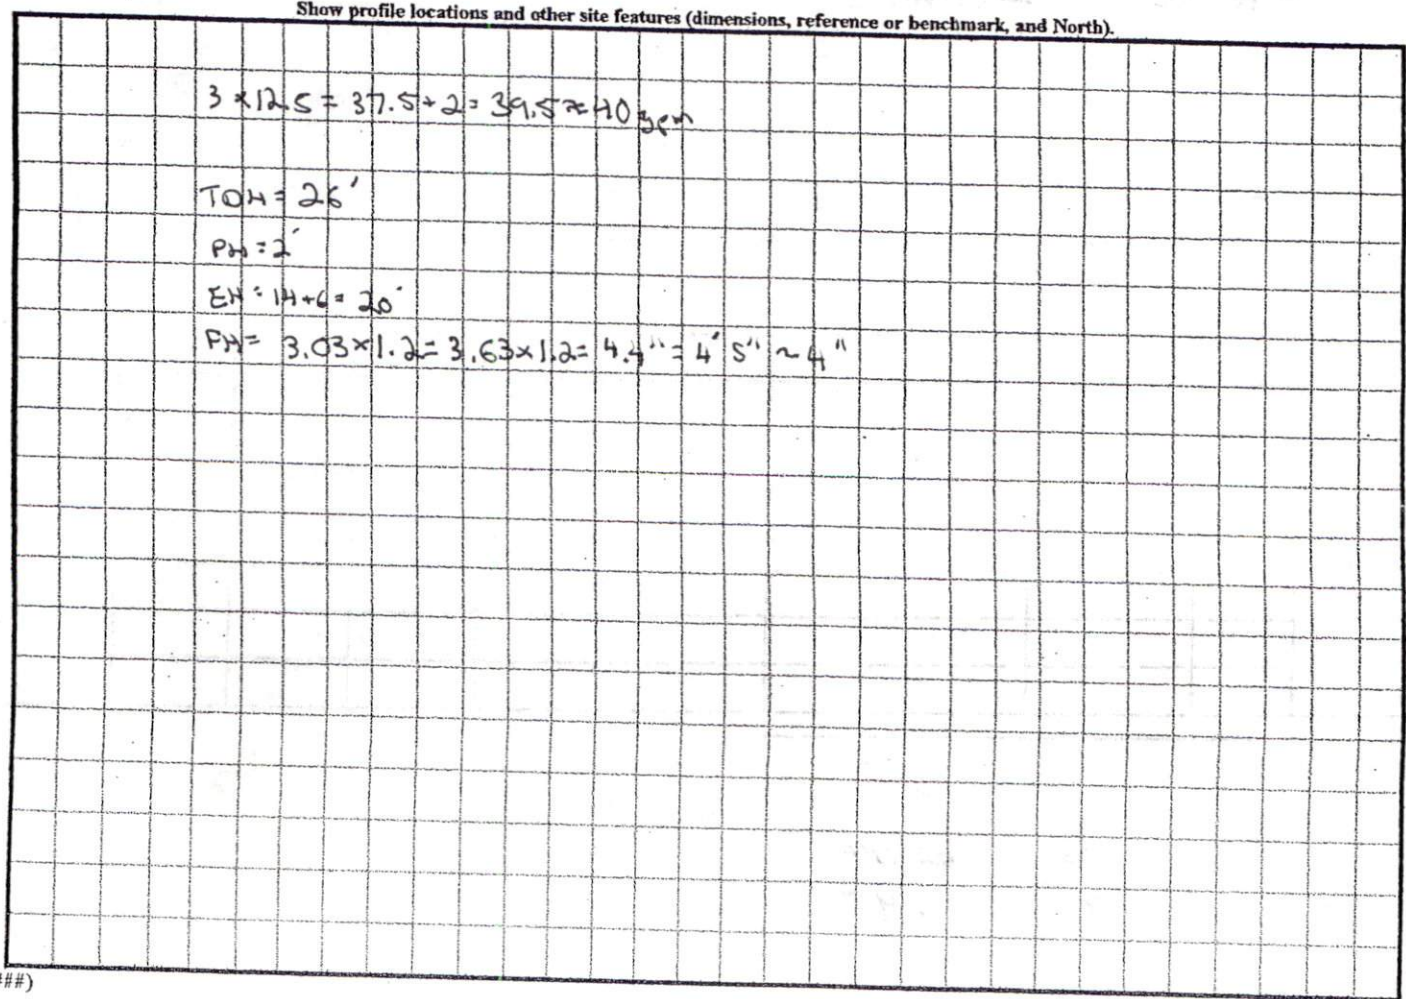 Show profile locations and other site features (dimensions, reference or benchmark, and North).
3 × 12.5 = 37.5 + 2 = 39.5 ≈ 40 gpm
TDH = 26'
PH = 2'
EH = 14+6 = 20'
FH = 3.03 × 1.2 = 3.63 × 1.2 = 4.4" = 4' 5" ~ 4"
##)